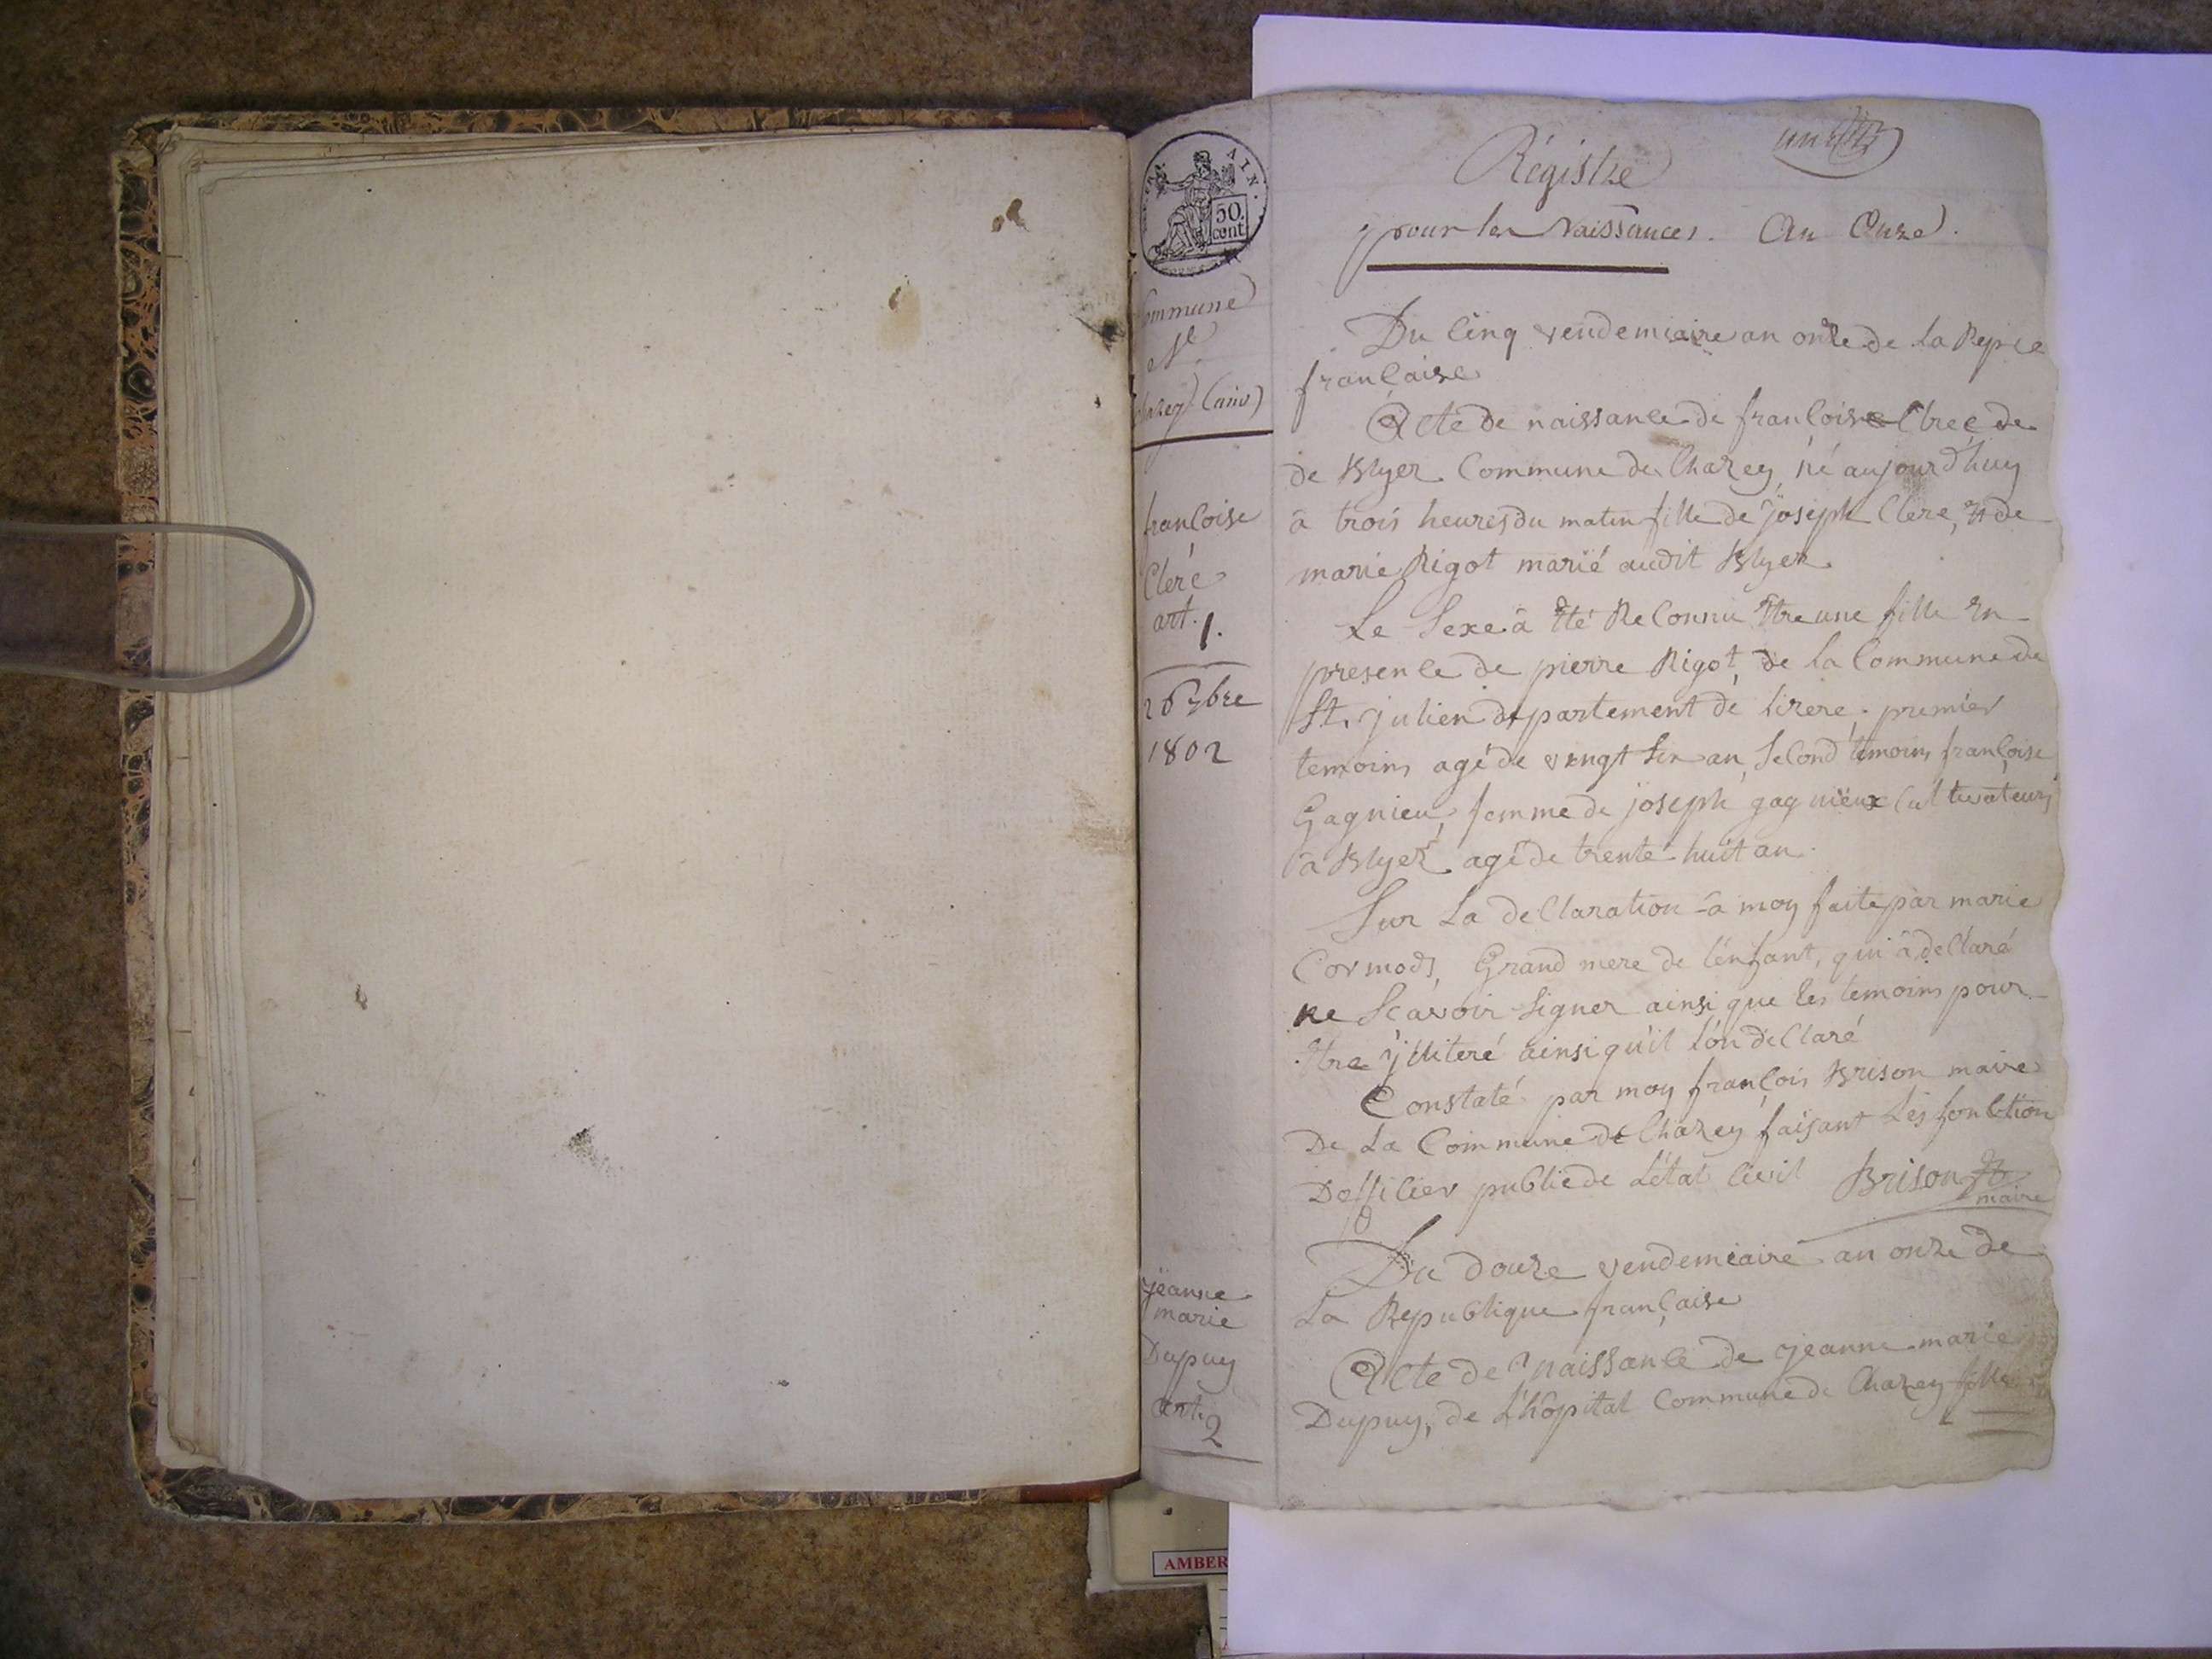 AIN.
50.
cent.
Commune
De
Chazey (ain)
françoise
Cleré
art.
1.
26 7bre
1802
jeanne
marie
Dupuy
art.
2
Régistre
pour les Naissances. An Onze.
Du Cinq vendemiaire an onze de La Repce
françaises
Acte de naissance de françoise Clreé de
de Blyer Commune de Chazey, né aujourd'huy
à trois heures du matin fille de joseph Clere, et de
marie Rigot marié audit Blyer.
Le Sexe à été ReConnu être une fille En
presence de pierre Rigot, de la Commune de
St. julien département de lizere. premier
temoins agé de vingt six an, SeCond temoins françoise
Gagnieu, femme de joseph gagnieux Cultivateurs
à Blyer agé de trente huit an.
Sur La deClaration à moy faite par marie
Cormods, Grand mere de lénfant, qui à deClaré
ne Scavoir Signer ainsi que les temoins pour
être jlliteré ainsi qu'il lón deClaré
Constaté par moy françois Brison maire
De La Commune de Chazey faisant Les fonction
Dofficier public de Létat Civil Brison
maire
Du douze vendemiaire an onze de
La Republique française
Acte de naissance de jeanne marie
Dupuy, de L'hôpital Commune de Chazey fille
AMBER